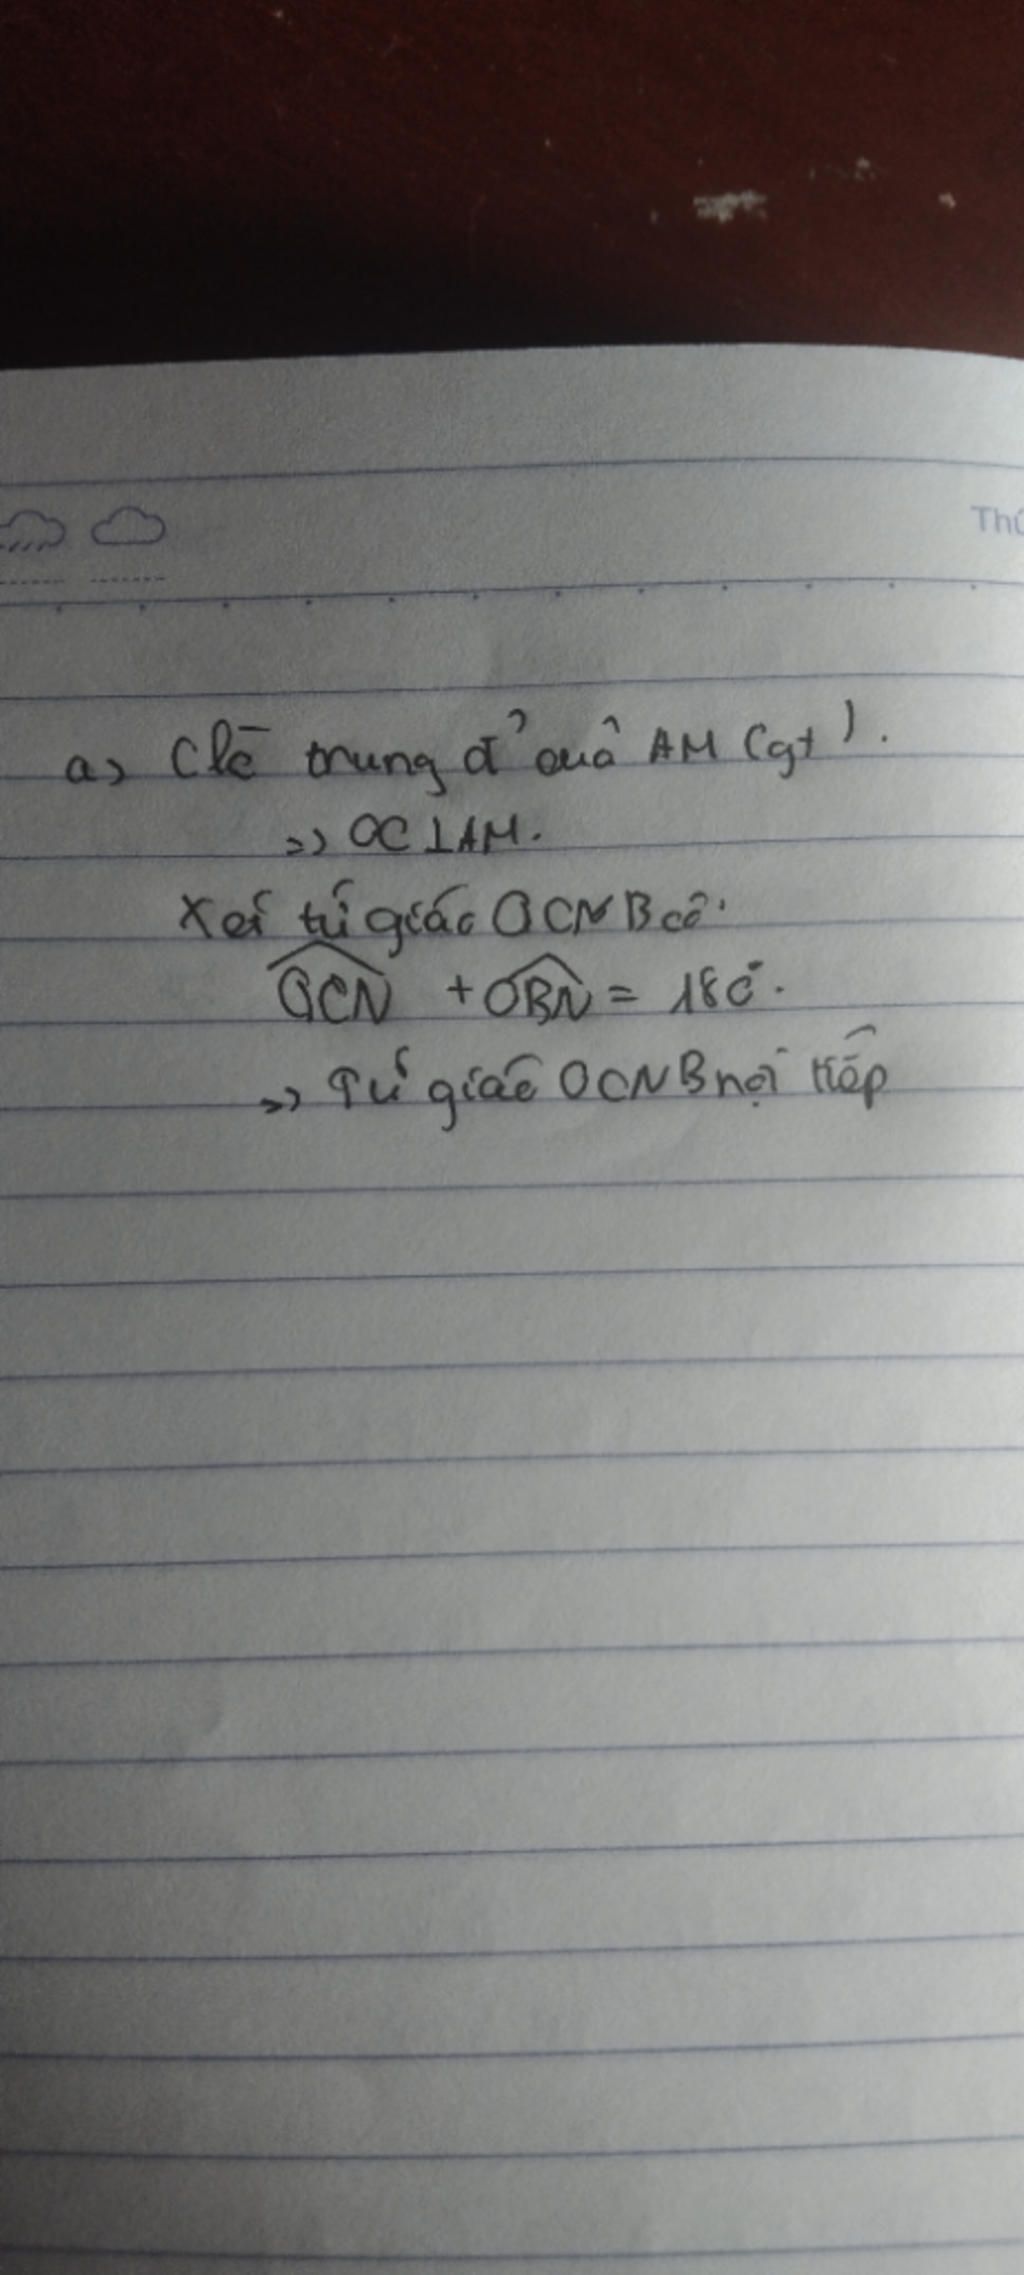 Thứ
a) C là trung đ' của AM (gt).
=> OC ⊥ AM.
Xét tứ giác OCNB có:
OCN + OBN = 180°.
=> Tứ giác OCNB nội tiếp